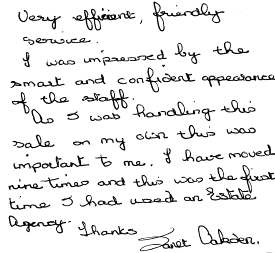 Very efficient, friendly
service.
I was impressed by the
smart and confident appearance
of the staff.
As I was handling this
sale on my own this was
important to me. I have moved
nine times and this was the first
time I had used an Estate
Agency. Thanks
Janet